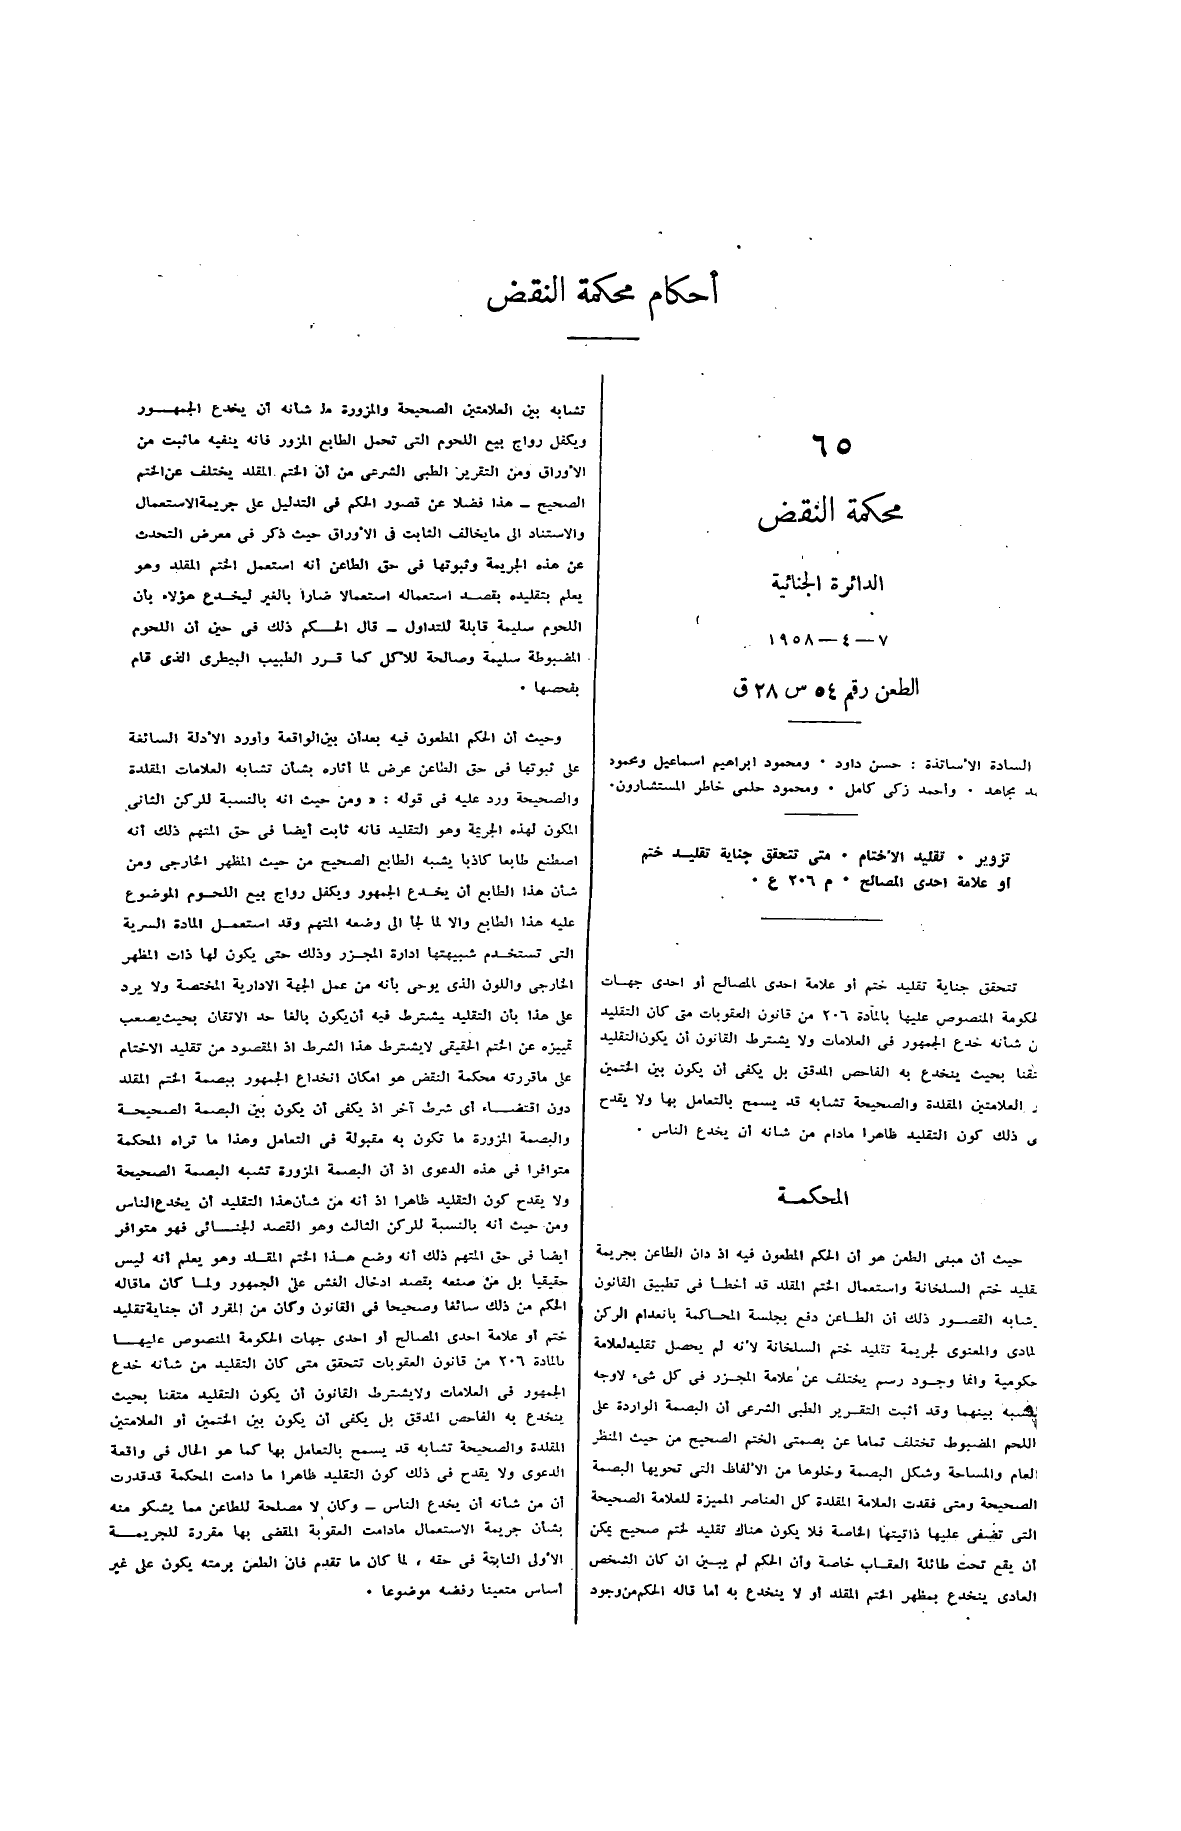 أحكام محكمة النقض
٦٥
محكمة النقض
الدائرة الجنائية
٧ — ٤ — ١٩٥٨
الطعن رقم ٥٤ س ٢٨ ق
السادة الأساتذة : حسن داود · ومحمود ابراهيم اسماعيل ومحمود
مجاهد · وأحمد زكى كامل · ومحمود حلمى خاطر المستشارون·
تزوير · تقليد الأختام · متى تتحقق جناية تقليد ختم
أو علامة احدى المصالح · م ٢٠٦ ع ·
تتحقق جناية تقليد ختم أو علامة احدى المصالح أو احدى جهات
لحكومة المنصوص عليها بالمادة ٢٠٦ من قانون العقوبات متى كان التقليد
ن شأنه خدع الجمهور فى العلامات ولا يشترط القانون أن يكون التقليد
تقنا بحيث ينخدع به الفاحص المدقق بل يكفى أن يكون بين الختمين
ر العلامتين المقلدة والصحيحة تشابه قد يسمح بالتعامل بها ولا يقدح
ى ذلك كون التقليد ظاهرا مادام من شانه أن يخدع الناس ·
المحكمة
حيث أن مبنى الطعن هو أن الحكم المطعون فيه اذ دان الطاعن بجريمة
قليد ختم السلخانة واستعمال الختم المقلد قد أخطأ فى تطبيق القانون
شابه القصور ذلك أن الطاعن دفع بجلسة المحاكمة بانعدام الركن
لمادى والمعنوى لجريمة تقليد ختم السلخانة لأنه لم يحصل تقليد لعلامة
حكومية وانما وجود رسم يختلف عن علامة المجزر فى كل شىء لاوجه
للشبه بينهما وقد أثبت التقرير الطبى الشرعى أن البصمة الواردة على
اللحم المضبوط تختلف تماما عن بصمتى الختم الصحيح من حيث المنظر
العام والمساحة وشكل البصمة وخلوها من الألفاظ التى تحويها البصمة
الصحيحة ومتى فقدت العلامة المقلدة كل العناصر المميزة للعلامة الصحيحة
التى تضفى عليها ذاتيتها الخاصة فلا يكون هناك تقليد لختم صحيح يمكن
أن يقع تحت طائلة العقاب خاصة وأن الحكم لم يبين ان كان الشخص
العادى ينخدع بمظهر الختم المقلد أو لا ينخدع به أما قاله الحكم من وجود
تشابه بين العلامتين الصحيحة والمزورة ما شأنه أن يخدع الجمهور
ويكفل رواج بيع اللحوم التى تحمل الطابع المزور فانه ينفيه ماثبت من
الأوراق ومن التقرير الطبى الشرعى من أن الختم المقلد يختلف عن الختم
الصحيح ــ هذا فضلا عن قصور الحكم فى التدليل على جريمة الاستعمال
والاستناد الى مايخالف الثابت فى الأوراق حيث ذكر فى معرض التحدث
عن هذه الجريمة وثبوتها فى حق الطاعن أنه استعمل الختم المقلد وهو
يعلم بتقليده بقصد استعماله استعمالا ضارا بالغير ليخدع هؤلاء بأن
اللحوم سليمة قابلة للتداول ــ قال الحكم ذلك فى حين أن اللحوم
المضبوطة سليمة وصالحة للأكل كما قرر الطبيب البيطرى الذى قام
بفحصها ·
وحيث أن الحكم المطعون فيه بعد أن بين الواقعة وأورد الأدلة السائغة
على ثبوتها فى حق الطاعن عرض لما أثاره بشأن تشابه العلامات المقلدة
والصحيحة ورد عليه فى قوله : « ومن حيث انه بالنسبة للركن الثانى
المكون لهذه الجريمة وهو التقليد فانه ثابت أيضا فى حق المتهم ذلك أنه
اصطنع طابعا كاذبا يشبه الطابع الصحيح من حيث المظهر الخارجى ومن
شأن هذا الطابع أن يخدع الجمهور ويكفل رواج بيع اللحوم الموضوع
عليه هذا الطابع والا لما لجأ الى وضعه المتهم وقد استعمل المادة السرية
التى تستخدم شبيهتها ادارة المجزر وذلك حتى يكون لها ذات المظهر
الخارجى واللون الذى يوحى بأنه من عمل الجهة الادارية المختصة ولا يرد
على هذا بأن التقليد يشترط فيه أن يكون بالغا حد الاتقان بحيث يصعب
تمييزه عن الختم الحقيقى لايشترط هذا الشرط اذ المقصود من تقليد الاختام
على ماقررته محكمة النقض هو امكان انخداع الجمهور ببصمة الختم المقلد
دون اقتضاء أى شرط آخر اذ يكفى أن يكون بين البصمة الصحيحة
والبصمة المزورة ما تكون به مقبولة فى التعامل وهذا ما تراه المحكمة
متوافرا فى هذه الدعوى اذ أن البصمة المزورة تشبه البصمة الصحيحة
ولا يقدح كون التقليد ظاهرا اذ أنه من شأن هذا التقليد أن يخدع الناس
ومن حيث أنه بالنسبة للركن الثالث وهو القصد الجنائى فهو متوافر
أيضا فى حق المتهم ذلك أنه وضع هذا الختم المقلد وهو يعلم أنه ليس
حقيقيا بل من صنعه بقصد ادخال الغش على الجمهور ولما كان ماقاله
الحكم من ذلك سائغا وصحيحا فى القانون وكان من المقرر أن جناية تقليد
ختم أو علامة احدى المصالح أو احدى جهات الحكومة المنصوص عليها
بالمادة ٢٠٦ من قانون العقوبات تتحقق متى كان التقليد من شأنه خدع
الجمهور فى العلامات ولايشترط القانون أن يكون التقليد متقنا بحيث
ينخدع به الفاحص المدقق بل يكفى أن يكون بين الختمين أو العلامتين
المقلدة والصحيحة تشابه قد يسمح بالتعامل بها كما هو الحال فى واقعة
الدعوى ولا يقدح فى ذلك كون التقليد ظاهرا ما دامت المحكمة قد قدرت
أن من شأنه أن يخدع الناس ــ وكان لا مصلحة للطاعن مما يشكو منه
بشأن جريمة الاستعمال مادامت العقوبة المقضى بها مقررة للجريمة
الأولى الثابتة فى حقه ، لما كان ما تقدم فان الطعن برمته يكون على غير
أساس متعينا رفضه موضوعا ·